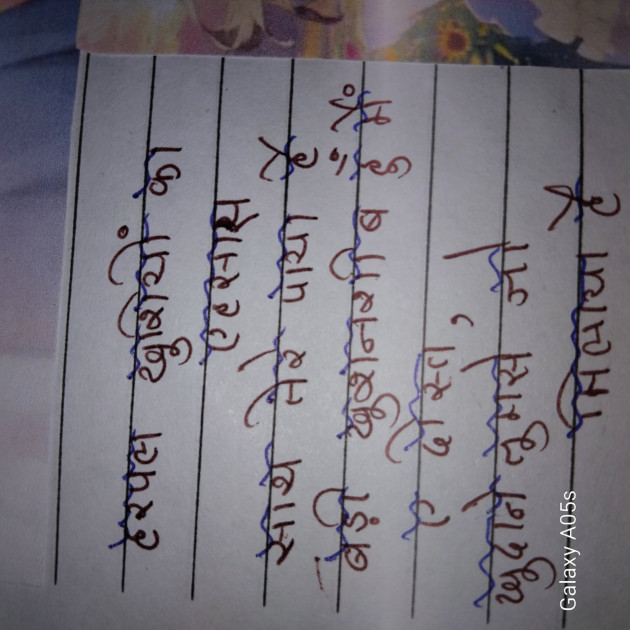 हरपल खुशियों का
एहसास
साथ तेरे पाया है
बड़ी खुशनशीब हुँ मैं
ए दोस्त,
खुदाने तुमसे जो
मिलाया है
Galaxy A05s